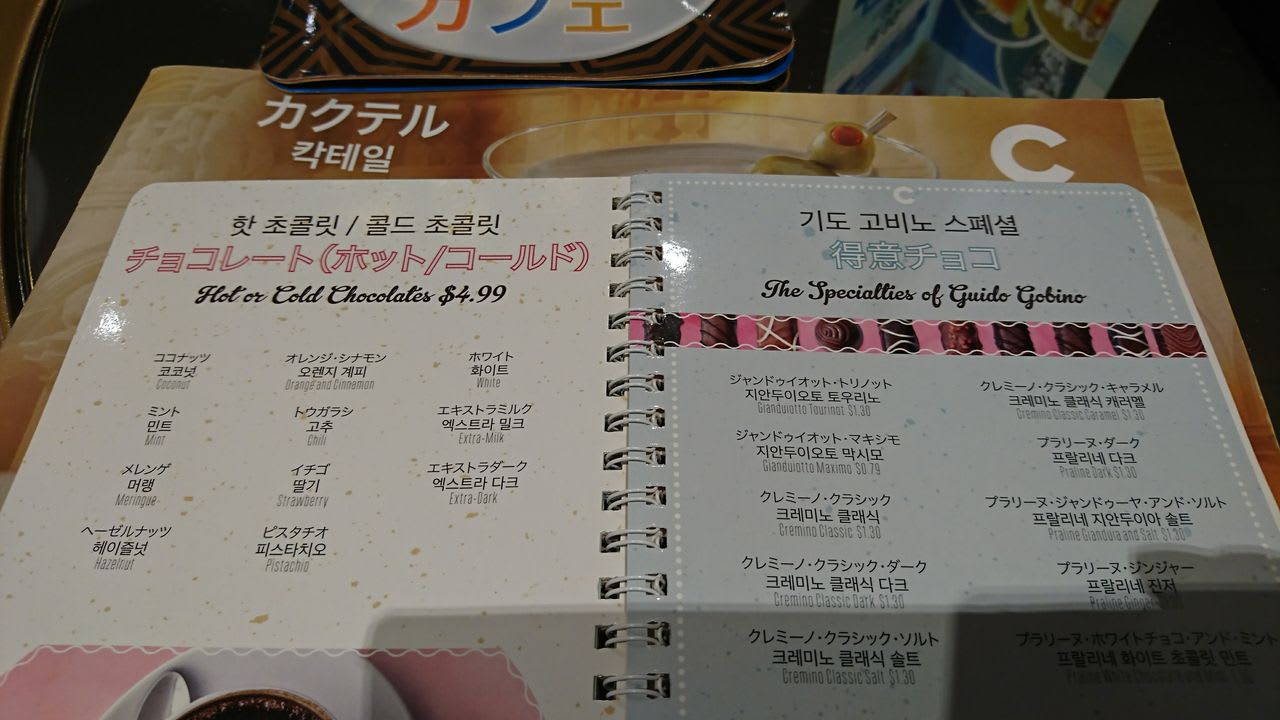 カフェ
カクテル
칵테일
C
핫 초콜릿 / 콜드 초콜릿
チョコレート(ホット/コールド)
Hot or Cold Chocolates $4.99
ココナッツ
코코넛
Coconut
オレンジ・シナモン
오렌지 계피
Orange and Cinnamon
ホワイト
화이트
White
ミント
민트
Mint
トウガラシ
고추
Chili
エキストラミルク
엑스트라 밀크
Extra-Milk
メレンゲ
머랭
Meringue
イチゴ
딸기
Strawberry
エキストラダーク
엑스트라 다크
Extra-Dark
ヘーゼルナッツ
헤이즐넛
Hazelnut
ピスタチオ
피스타치오
Pistachio
C
기도 고비노 스폐셜
得意チョコ
The Specialties of Guido Gobino
ジャンドゥイオット・トリノット
지안두이오토 토우리노
Gianduiotto Tourinot $1.30
クレミーノ・クラシック・キャラメル
크레미노 클래식 캐러멜
Cremino Classic Caramel $1.30
ジャンドゥイオット・マキシモ
지안두이오토 막시모
Gianduiotto Maximo $0.79
プラリーヌ・ダーク
프랄리네 다크
Praline Dark $1.30
クレミーノ・クラシック
크레미노 클래식
Cremino Classic $1.30
プラリーヌ・ジャンドゥーヤ・アンド・ソルト
프랄리네 지안두이아 솔트
Praline Gianduia and Salt $1.30
クレミーノ・クラシック・ダーク
크레미노 클래식 다크
Cremino Classic Dark $1.30
プラリーヌ・ジンジャー
프랄리네 진저
Praline Ginger
クレミーノ・クラシック・ソルト
크레미노 클래식 솔트
Cremino Classic Salt $1.30
プラリーヌ・ホワイトチョコ・アンド・ミント
프랄리네 화이트 초콜릿 민트
Praline White Chocolate and Mint